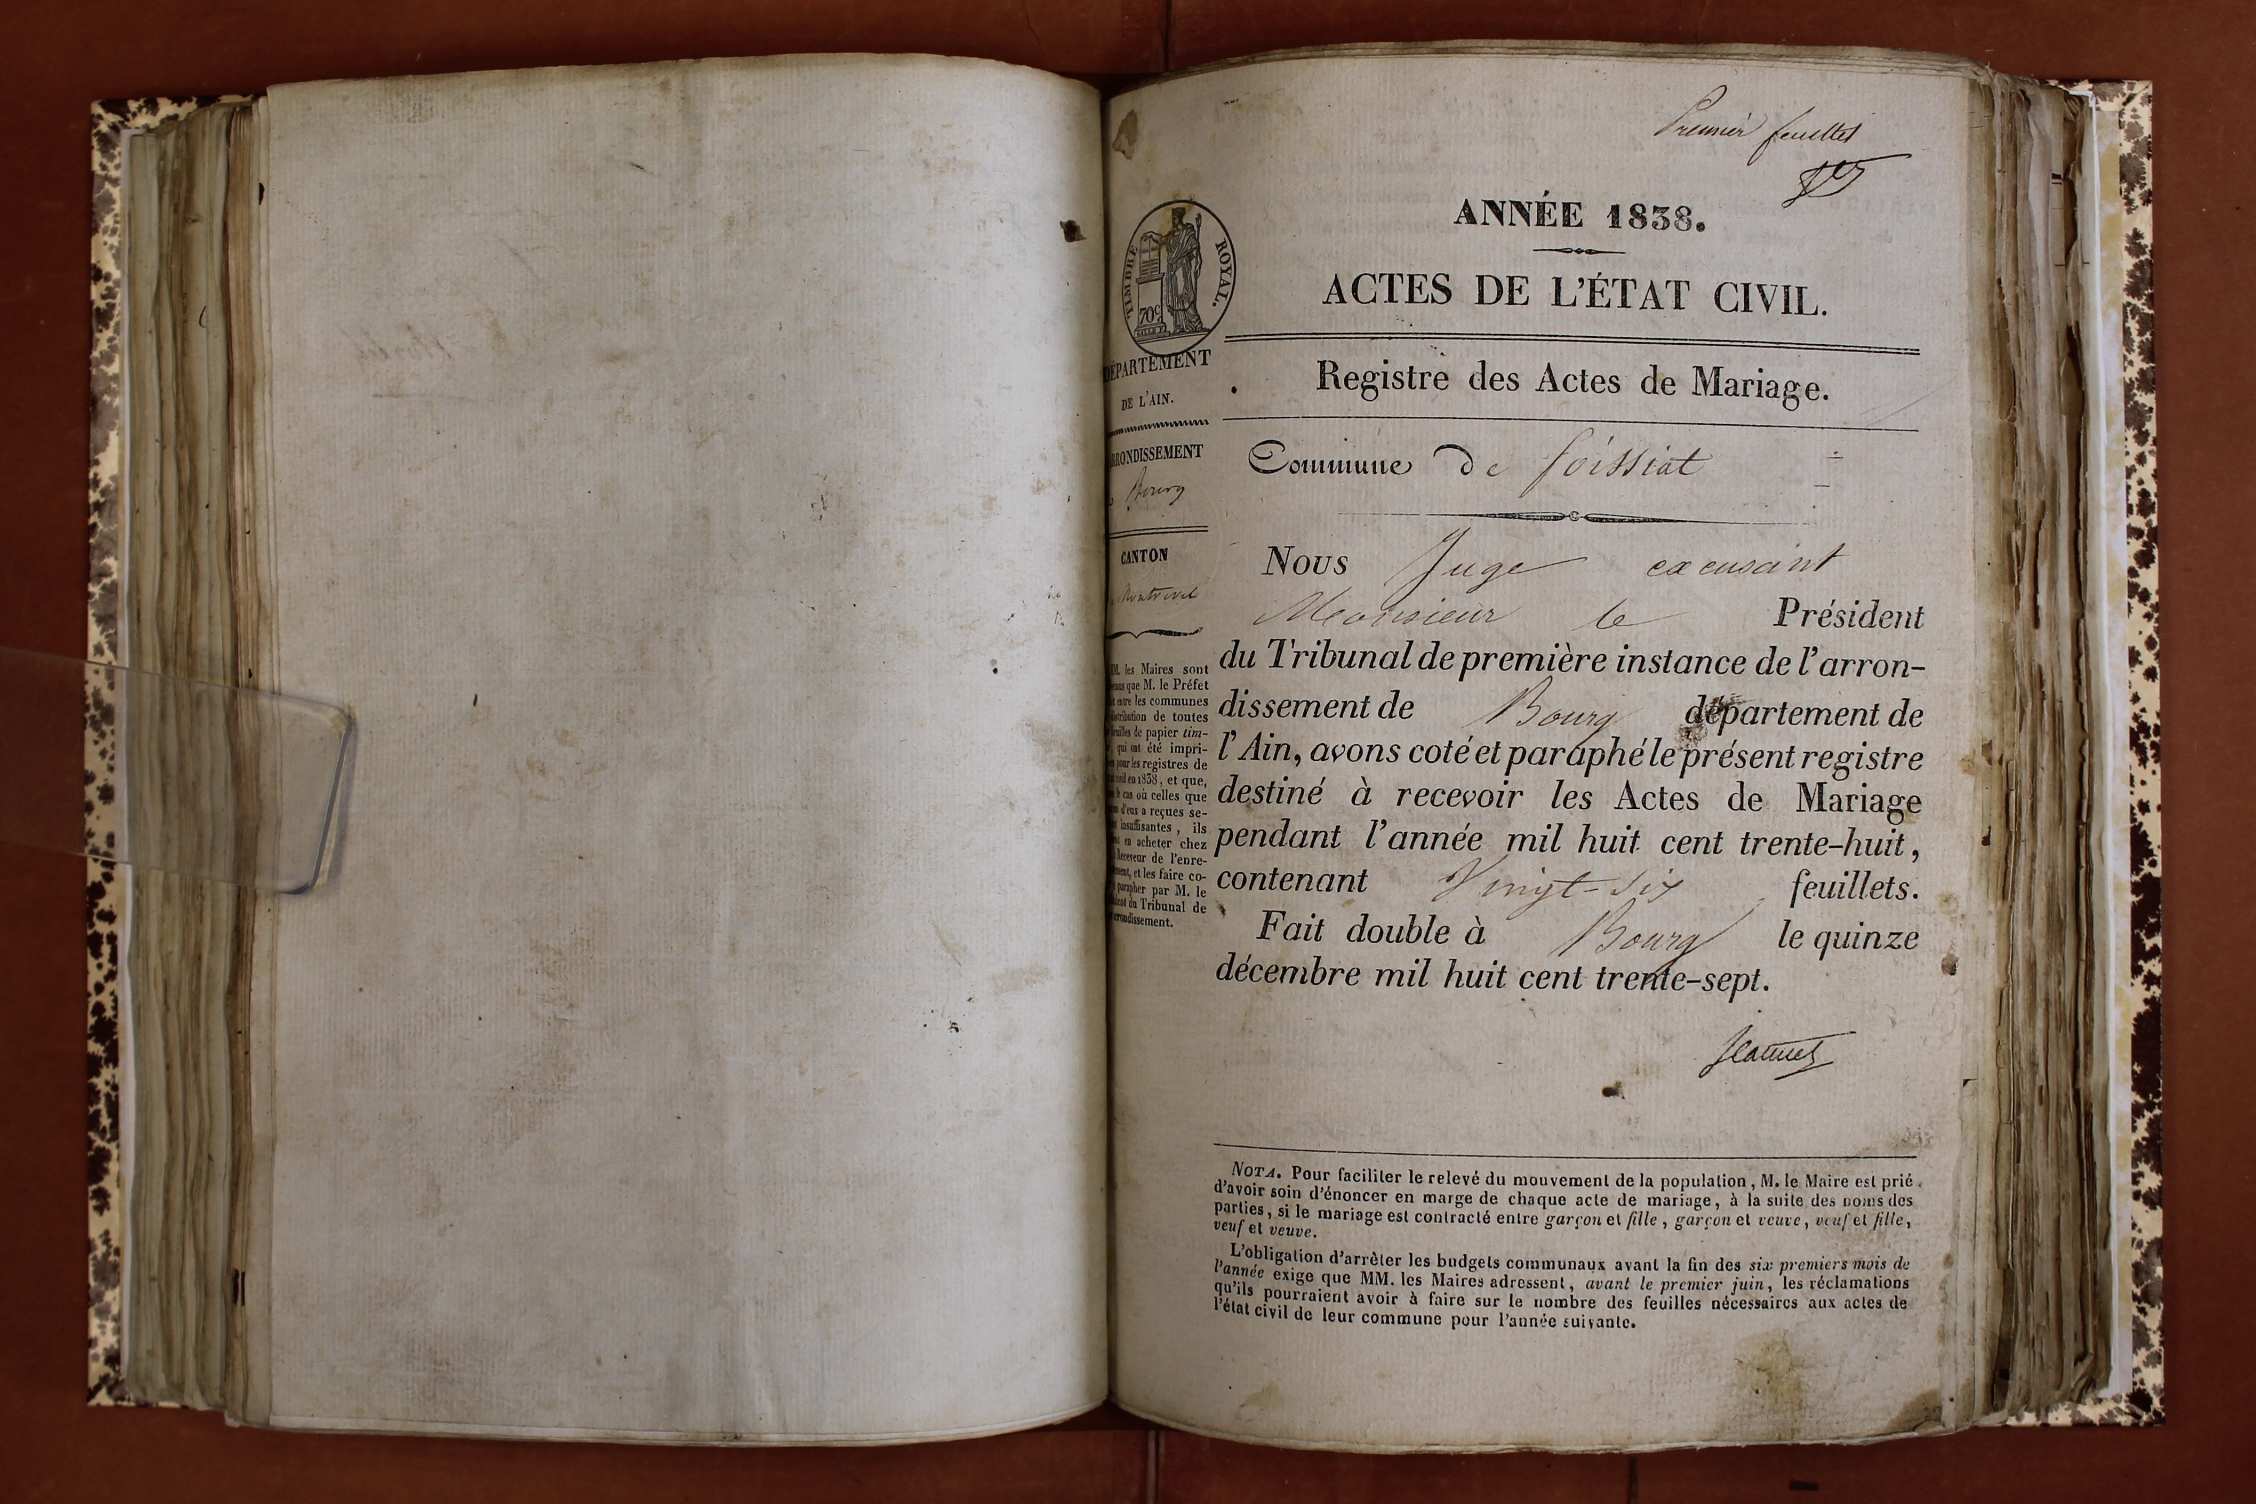 Premier feuillet
ANNÉE 1838.
ACTES DE L'ÉTAT CIVIL.
Registre des Actes de Mariage.
Commune de foissiat
TIMBRE ROYAL.
70c
DÉPARTEMENT
DE L'AIN.
ARRONDISSEMENT
Bourg
CANTON
Montrevel
MM. les Maires sont
que M. le Préfet
entre les communes
distribution de toutes
feuilles de papier tim-
qui ont été impri-
pour les registres de
en 1838, et que,
le cas où celles que
d'eux a reçues se-
insuffisantes, ils
en acheter chez
Receveur de l'enre-
et les faire co-
parapher par M. le
du Tribunal de
Nous Juge excusant
Monsieur le Président
du Tribunal de première instance de l'arron-
dissement de Bourg département de
l'Ain, avons coté et paraphé le présent registre
destiné à recevoir les Actes de Mariage
pendant l'année mil huit cent trente-huit,
contenant Vingt-six feuillets.
Fait double à Bourg le quinze
décembre mil huit cent trente-sept.
NOTA. Pour faciliter le relevé du mouvement de la population, M. le Maire est prié
d'avoir soin d'énoncer en marge de chaque acte de mariage, à la suite des noms des
parties, si le mariage est contracté entre garçon et fille, garçon et veuve, veuf et fille,
veuf et veuve.
L'obligation d'arrêter les budgets communaux avant la fin des six premiers mois de
l'année exige que MM. les Maires adressent, avant le premier juin, les réclamations
qu'ils pourraient avoir à faire sur le nombre des feuilles nécessaires aux actes de
l'état civil de leur commune pour l'année suivante.